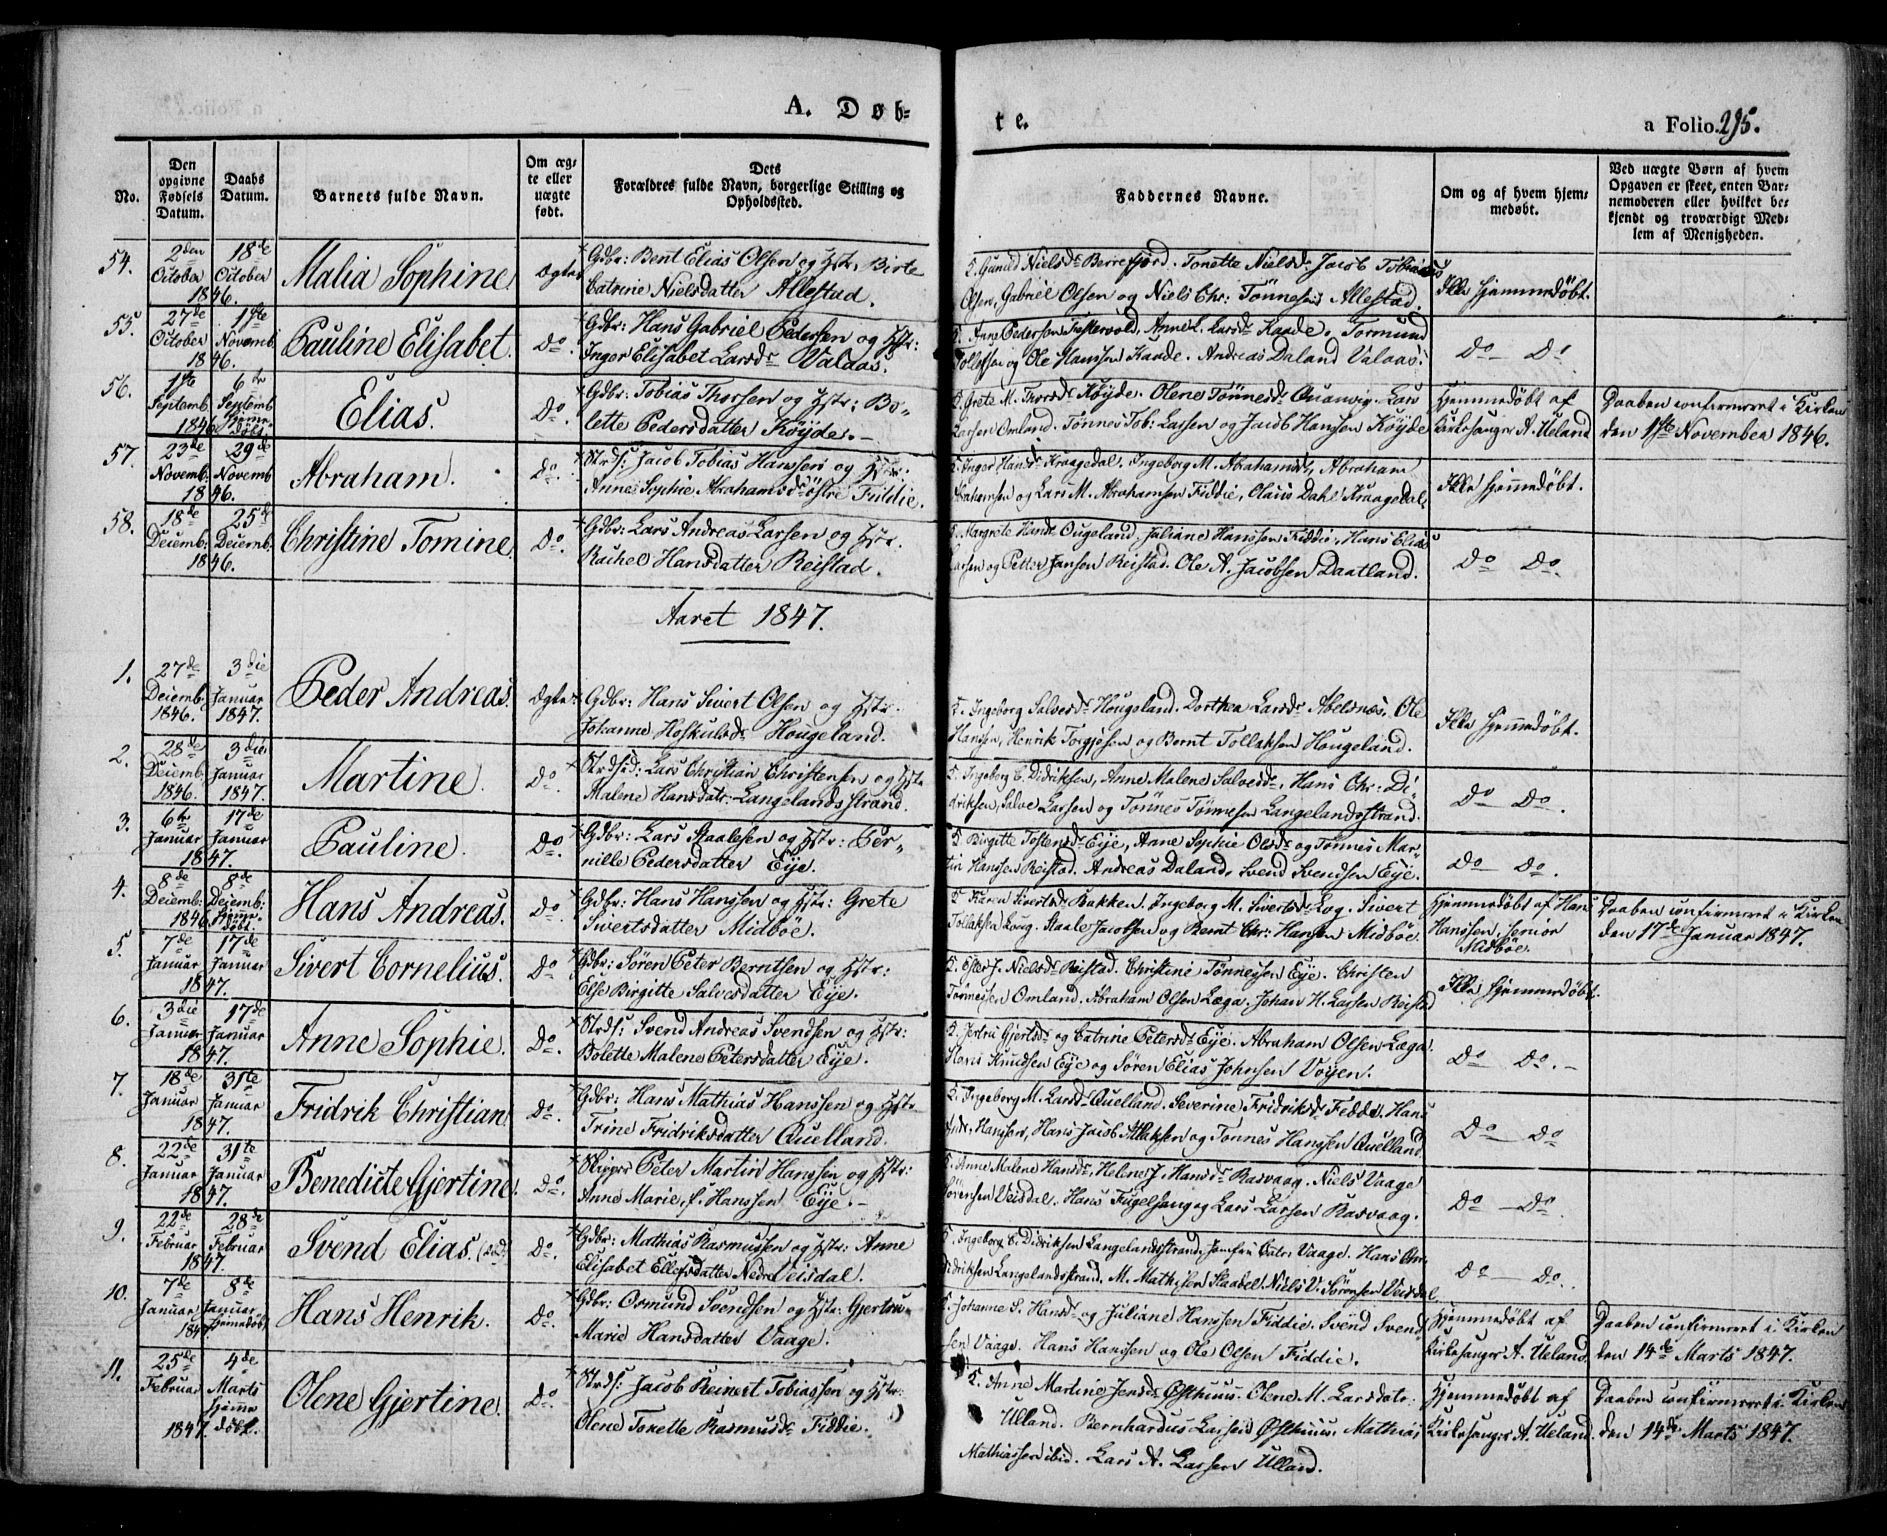 A. Døb-
te.
a Folio. 295.
No.
Den opgivne Fødsels Datum.
Daabs Datum.
Barnets fulde Navn.
Om ægte eller uægte født.
Dets Forældres fulde Navn, borgerlige Stilling og Opholdssted.
Faddernes Navne.
Om og af hvem hjemmedøbt.
Ved uægte Børn af hvem Opgaven er skeet, enten Barnemoderen eller hvilket bekjendt og troværdigt Medlem af Menigheden.
54. 2den October 18de October 1846. Malia Sophine Ægte Gdbr: Bent Elias Olsen og Hstr. Birte
Catrine Nielsdatter Allestad.
F. Gunild Nielsdr Berrefjord. Tonette Nielsd. Jacob Tobias
Olsen, Gabriel Olsen og Niels Chr: Tönnesen Allestad.
Ikke hjemmedøbt.
55. 27de October 1ste Novemb 1846. Pauline Elisabet. Do. Gdbr: Hans Gabriel Pedersen og Hstr:
Inger Elisabet Larsdr Valaas.
F. Anne Pedersen, Anne L. Larsdr Kaade. Tormund
Tollefsen og Ole Hanssen Kaade. Andreas Daland Valaas.
Do Do
56. 1ste Septemb. 6te Septemb 1846 Hjemmedøbt Elias. Do. Gdbr: Tobias Thorsen og Hstr: Bo-
lette Pedersdatter Köyde.
F. Grete M. Thorsdr Köyde. Olene Tönnesdr Quanvig. Lars
Larsen Omland. Tönnes Tob: Larsen og Jacob Hansen Köyde
Hjemmedøbt af
Kirkesanger A. Ueland
Daaben confirmeret i Kirken
den 1ste November 1846.
57. 23de Novemb. 29de Novemb 1846. Abraham. Do. Strds: Jacob Tobias Hanssen og Hstr.
Anne Sophie Abrahamsdr östre Fiddie.
F. Inger Hansdr Kraagedal, Ingeborg M. Abrahamsdr, Abraham
Abrahamsen og Lars M. Abrahamsen Fiddie, Olaus Dahl Kraagedal.
Ikke hjemmedøbt.
58. 18de Decemb: 25de Decemb: 1846. Christine Tomine Do. Gdbr: Lars Andreas Larsen og Hstr.
Rachel Hansdatter Reistad.
F. Margrete Hansdr Ougeland, Juliane Hanssen Fiddie, Hans Elias
Larsen og Petter Jansen Reistad. Ole A. Jacobsen Daatland.
Do Do.
Aaret 1847.
1. 27de Decemb: 1846. 3die Januar 1847. Peder Andreas. Ægte Gdbr: Hans Sivert Olsen og Hstr.
Johanne Hoskulsdr Hougeland.
F. Ingeborg Salvesdr Hougeland. Dorthea Larsdr Abelsnæs. Ole
Hansen, Henrik Torgjesen og Bernt Tollaksen Hougeland.
Ikke hjemmedøbt.
2. 28de Decemb: 1846. 3die Januar 1847. Martine. Do Strdsid: Lars Christian Christensen og Hstr
Malene Hansdatr: Langelandsstrand.
F. Ingeborg C. Didriksen, Anne Malene Salvesdr, Hans Chr: Di-
driksen, Salve Larsen og Tönnes Tönnesen Langelandsstrand.
Do Do.
3. 6te Januar 17de Januar 1847. Pauline. Do. Gdbr: Lars Staalesen og Hstr: Per-
nille Pedersdatter Eye.
F. Birgitte Tostensdr Eye, Anne Sophie Olsdr og Tönnes Mar-
tin Hansen Reistad. Andreas Daland, Svend Svendsen Eye.
Do Do.
4. 8de Decemb: 8de Decemb: 1846 Hjemmedøbt. Hans Andreas. Do Gdbr: Hans Hanssen og Hstr: Grete
Sivertsdatter Midböe.
F. Karen Sivertsdr Bakken, Ingeborg M. Sivertsdr Log. Sivert
Tollaksen Loug. Staale Jacobsen og Bernt Chr: Hansen Midböe
Hjemmedøbt af Hans
Hanssen, senior
Midböe.
Daaben confirmeret i Kirken
den 17de Januar 1847.
5. 7de Januar 17de Januar 1847. Sivert Cornelius. Do Gdbr: Sören Peter Berntsen og Hstr:
Else Birgitte Salvesdatter Eye.
F. Ester J. Nielsdr Reistad. Christine Tönnesen Eye. Christen
Tönnesen Omland. Abraham Olsen Læga. Johan H. Larsen Reistad
Ikke hjemmedøbt.
6. 3die Januar 17de Januar 1847. Anne Sophie. Do. Strds: Svend Andreas Svendsen og Hstr:
Bolette Malene Petersdatter Eye.
F. Gjertsdr og Catrine Petersdr Eye. Abraham Olsen Læga.
Hans Knudsen Eye og Sören Elias Johnsen Voyen.
Do Do.
7. 18de Januar 31te Januar 1847. Fridrik Christian Do. Gdbr: Hans Mathias Hanssen og Hstr
Trine Fridriksdatter Quelland.
F. Ingeborg M. Larsdr Quelland. Severine Fridriksdr Fedde. Hans
Andr. Hanssen, Hans Jacob Atlaksen og Tönnes Hansen Quelland
Do Do
8. 22de Januar 31te Januar 1847. Benedicte Gjertine. Do. Skipper Peter Martin Hanssen og Hstr:
Anne Marie, f. Hanssen Eye.
F. Anne Malene Hansdr, Helene J. Hansdr Rasvaag. Niels Vaage
Sörensen Veisdal. Hans Fugelsang og Lars Larsen Rasvaag.
Do Do.
9. 22de Februar 28de Februar 1847. Svend Elias. Do. Gdbr: Mathias Rasmussen og Hstr: Anne
Elisabet Ellefsdatter Nedre Veisdal.
F. Ingeborg C. Didriksen Langelandsstrand, Vaage. Hans Chr.
Didriksen Langelandsstrand. M. Mathisen Staadel. Niels V. Sörensen Veisdal
Do Do.
10. 7de Januar 8de Januar 1847. Hjemmedøbt Hans Henrik. Do. Gdbr: Osmund Svendsen og Hstr: Gjertru-
Marie Hansdatter Vaage.
F. Johanne S. Hansdr og Juliane Hanssen Fiddie. Svend Svend-
sen Vaage. Hans Hanssen og Ole Olsen Fiddie.
Hjemmedøbt af
Kirkesanger A. Ueland.
Daaben confirmeret i Kirken
den 14de Marts 1847.
11. 25de Februar 4de Marts 1847. Hjemmedøbt. Olene Gjertine. Do Strds: Jacob Reinert Tobiassen og Hstr.
Olene Tonette Rasmusdr Fiddie.
F. Anne Martine Jensdr Østhuus. Olene M. Larsdatr.
Ulland. Bernhardus Larsen Østhuus. Mathias
Mathiassen ibid. Lars A. Larsen Ulland.
Hjemmedøbt af
Kirkesanger A. Ueland.
Daaben confirmeret i Kirken
den 14de Marts 1847.